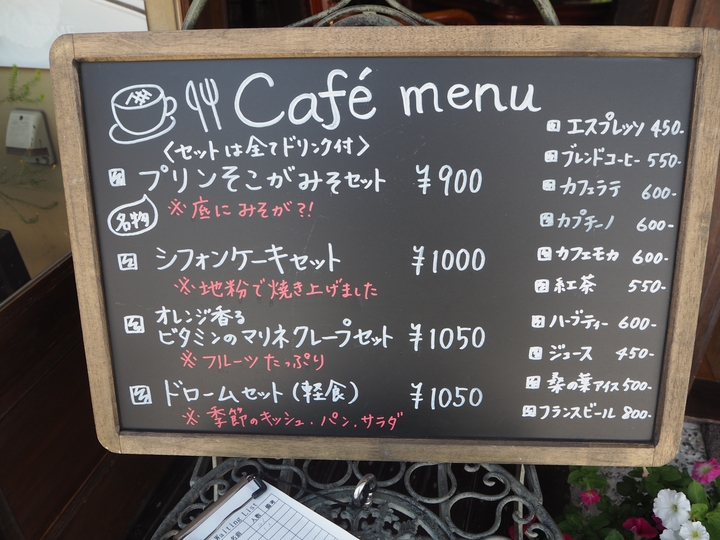 Café menu
〈セットは全てドリンク付〉
プリンそこがみそセット ¥900
名物
※底にみそが?!
シフォンケーキセット ¥1000
※地粉で焼き上げました
オレンジ香る
ビタミンのマリネクレープセット ¥1050
※フルーツたっぷり
ドロームセット(軽食) ¥1050
※季節のキッシュ.パン.サラダ
エスプレッソ 450-
ブレンドコーヒー 550-
カフェラテ 600-
カプチーノ 600-
カフェモカ 600-
紅茶 550-
ハーブティー 600-
ジュース 450-
桑の葉アイス 500-
フランスビール 800-
Waiting List
名前 人数 備考